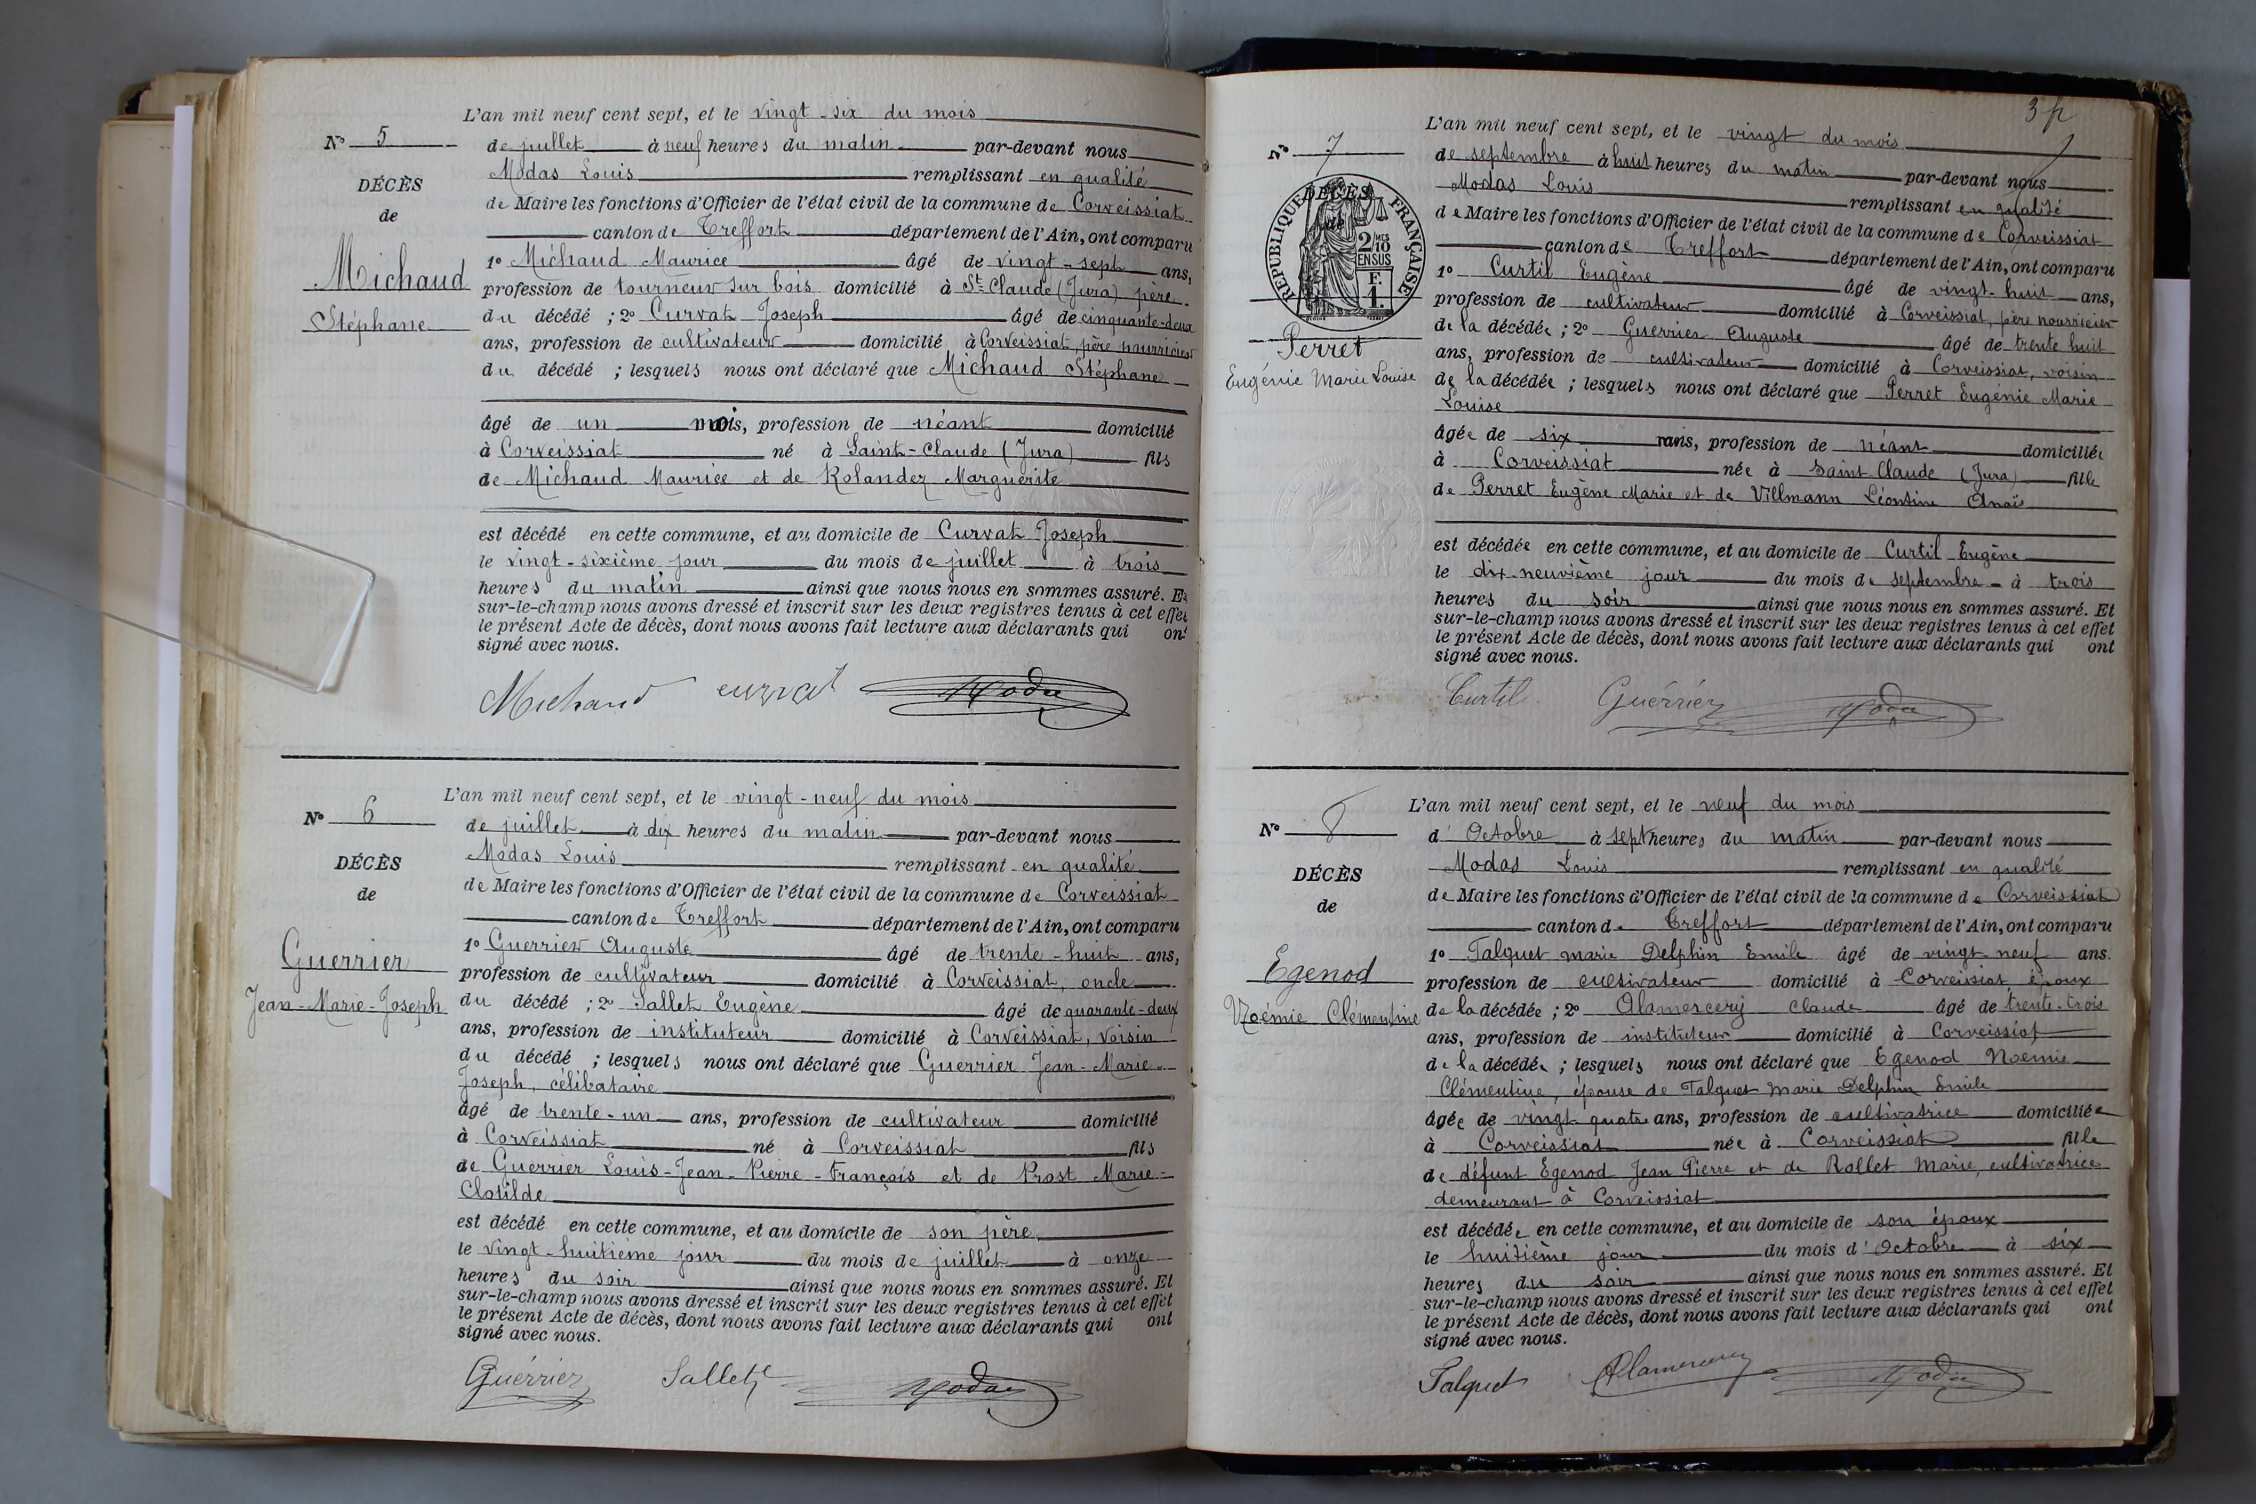 L'an mil neuf cent sept, et le vingt-six du mois
N° 5
de juillet à neuf heures du matin par-devant nous
DÉCÈS
Modas Louis remplissant en qualité
de
de Maire les fonctions d'Officier de l'état civil de la commune de Corveissiat
canton de Treffort département de l'Ain, ont comparu
Michaud
Stéphane
1° Michaud Maurice âgé de vingt-sept ans,
profession de tourneur sur bois domicilié à St-Claude (Jura) père
du décédé ; 2° Curvat Joseph âgé de cinquante-deux
ans, profession de cultivateur domicilié à Corveissiat, père nourricier
du décédé ; lesquels nous ont déclaré que Michaud Stéphane
âgé de un mois, profession de néant domicilié
à Corveissiat né à Saint-Claude (Jura) fils
de Michaud Maurice et de Rolandez Marguerite
est décédé en cette commune, et au domicile de Curvat Joseph
le vingt-sixième jour du mois de juillet à trois
heures du matin ainsi que nous nous en sommes assuré. Et
sur-le-champ nous avons dressé et inscrit sur les deux registres tenus à cet effet
le présent Acte de décès, dont nous avons fait lecture aux déclarants qui ont
signé avec nous.
Michaud curvat Modas
L'an mil neuf cent sept, et le vingt-neuf du mois
N° 6
de juillet à dix heures du matin par-devant nous
DÉCÈS
Modas Louis remplissant en qualité
de
de Maire les fonctions d'Officier de l'état civil de la commune de Corveissiat
canton de Treffort département de l'Ain, ont comparu
Guerrier
Jean-Marie-Joseph
1° Guerrier Auguste âgé de trente-huit ans,
profession de cultivateur domicilié à Corveissiat, oncle
du décédé ; 2° Sallet Eugène âgé de quarante-deux
ans, profession de instituteur domicilié à Corveissiat, voisin
du décédé ; lesquels nous ont déclaré que Guerrier Jean-Marie-
Joseph, célibataire
âgé de trente-un ans, profession de cultivateur domicilié
à Corveissiat né à Corveissiat fils
de Guerrier Louis-Jean-Pierre-François et de Prost Marie-
Clotilde
est décédé en cette commune, et au domicile de son père,
le vingt-huitième jour du mois de juillet à onze
heures du soir ainsi que nous nous en sommes assuré. Et
sur-le-champ nous avons dressé et inscrit sur les deux registres tenus à cet effet
le présent Acte de décès, dont nous avons fait lecture aux déclarants qui ont
signé avec nous.
Guérrier Sallet Modas
L'an mil neuf cent sept, et le vingt du mois
N° 7
de septembre à huit heures du matin par-devant nous
DÉCÈS
de
RÉPUBLIQUE FRANÇAISE
2/10 MES
EN SUS
F.
1.
Modas Louis remplissant en qualité
de Maire les fonctions d'Officier de l'état civil de la commune de Corveissiat
canton de Treffort département de l'Ain, ont comparu
Perret
Eugénie Marie Louise
1° Curtil Eugène âgé de vingt-huit ans,
profession de cultivateur domicilié à Corveissiat, père nourricier
de la décédée ; 2° Guerrier Auguste âgé de trente huit
ans, profession de cultivateur domicilié à Corveissiat, voisin
de la décédée ; lesquels nous ont déclaré que Perret Eugénie Marie
Louise
âgée de six mois, profession de néant domiciliée
à Corveissiat née à Saint Claude (Jura) fille
de Perret Eugène Marie et de Villmann Léontine Anaïs
est décédée en cette commune, et au domicile de Curtil Eugène
le dix-neuvième jour du mois de septembre à trois
heures du soir ainsi que nous nous en sommes assuré. Et
sur-le-champ nous avons dressé et inscrit sur les deux registres tenus à cet effet
le présent Acte de décès, dont nous avons fait lecture aux déclarants qui ont
signé avec nous.
Curtil Guérrier Modas
L'an mil neuf cent sept, et le neuf du mois
N° 8
d'Octobre à sept heures du matin par-devant nous
DÉCÈS
Modas Louis remplissant en qualité
de
de Maire les fonctions d'Officier de l'état civil de la commune de Corveissiat
canton de Treffort département de l'Ain, ont comparu
Egenod
Noémie Clémentine
1° Talquet Marie Delphin Emile âgé de vingt neuf ans.
profession de cultivateur domicilié à Corveissiat époux
de la décédée ; 2° Alamercery Claude âgé de trente-trois
ans, profession de instituteur domicilié à Corveissiat
de la décédée ; lesquels nous ont déclaré que Egenod Noémie
Clémentine, épouse de Talquet Marie Delphin Emile
âgée de vingt quatre ans, profession de cultivatrice domiciliée
à Corveissiat née à Corveissiat fille
de défunt Egenod Jean Pierre et de Rollet Marie, cultivatrice
demeurant à Corveissiat
est décédée en cette commune, et au domicile de son époux
le huitième jour du mois d'Octobre à six
heures du soir ainsi que nous nous en sommes assuré. Et
sur-le-champ nous avons dressé et inscrit sur les deux registres tenus à cet effet
le présent Acte de décès, dont nous avons fait lecture aux déclarants qui ont
signé avec nous.
Talquet Alamercery Modas